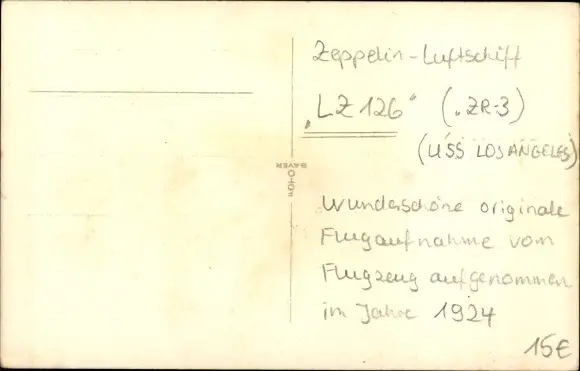 Zeppelin-Luftschiff
„LZ 126" („ZR-3)
(USS LOS ANGELES)
BAYER
FOTO
Wunderschöne originale
Flugaufnahme vom
Flugzeug aufgenommen
im Jahre 1924
15€